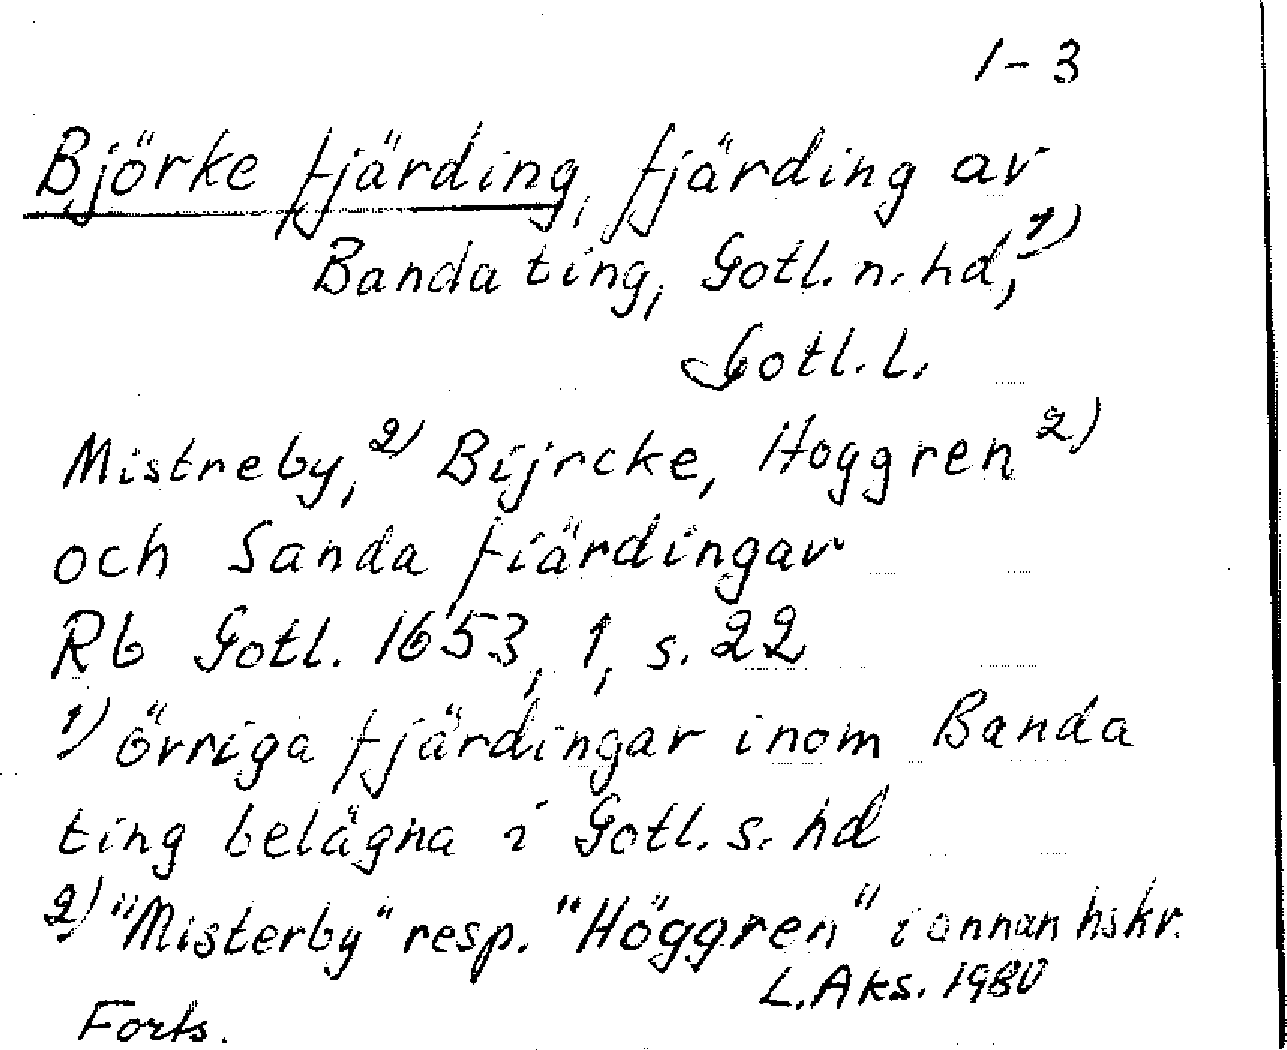 1-3
Björke fjärding, fjärding av
Banda ting, Gotl. n. hd,1)
Gotl. l.
Mistreby,2) Bijrcke, Hoggren2)
och Sanda fiärdingar
Rb Gotl. 1653, 1, s. 22
1) övriga fjärdingar inom Banda
ting belägna i Gotl. s. hd
2) "Misterby" resp. "Höggren" i annan hskr.
L. Aks. 1980
Forts.